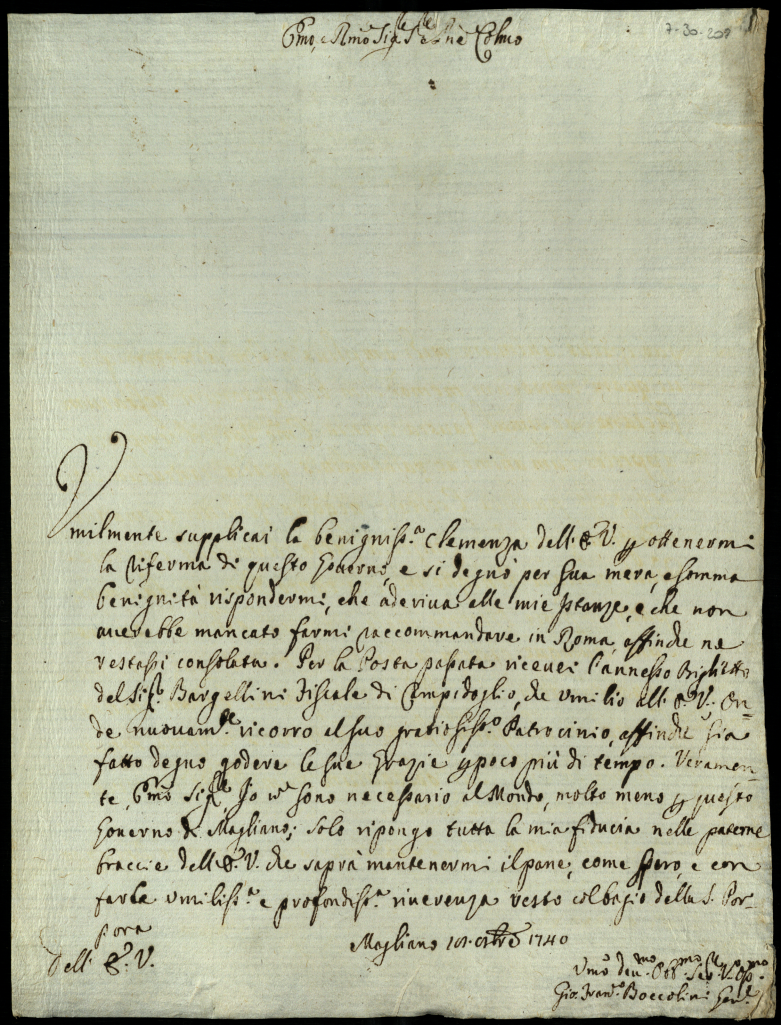 7-30-200
Emo, e Rmo Sig.re P.re Pne Colmo
Umilmente supplicai la benigniss.a Clemenza dell'E.V. p ottenermi
la riferma di questo Governo, e si degnò per sua mera, e somma
benignità rispondermi, che aderiva alle mie Istanze, e che non
auerebbe mancato farmi raccommandare in Roma, affinche ne
restassi consolato. Per la Posta passata riceuei l'annesso Biglietto
del Sig.r Bargellini Fiscale di Campidoglio, che umilio all'E.V. On-
de nuouam.te ricorro al suo gratiosiss.o Patrocinio, affinche sia
fatto degno godere le sue Grazie p poco più di tempo. Veramen-
te, Emo Sig.re, Io n sono necessario al Mondo, molto meno p questo
Governo di Magliano; solo ripongo tutta la mia fiducia nelle paterne
braccie dell'E.V. che saprà mantenermi il pane, come spero, e con
farle umiliss.a e profondiss.a riuerenza resto col bagio della S. Por-
pora
Dell'E.V.
Magliano 1740
Umo deu.mo Obb.mo Ser.
Gio: Fran.co Boccolini Gov.re